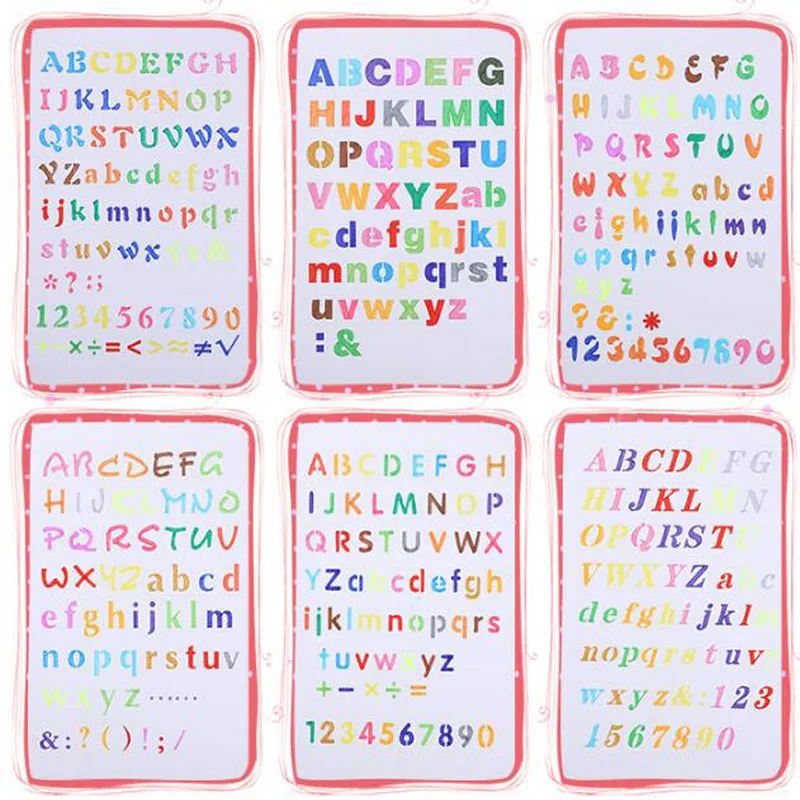 ABCDEFGH
IJKLMNOP
QRSTUVWX
YZabcdefgh
ijklmnopqr
stuvwx yz&
*?:;
1234567890
+-×÷=<>≈≠√
ABCDEFG
HIJKLMN
OPQRSTU
VWXYZab
cdefghijkl
mnopqrst
uvwxyz
:&
ABCDEFG
HIJKLMNO
PQRSTUV
WXYZ abcd
efghijklmn
opqrstuvw
xyz
?&:*
1234567890
ABCDEFG
HIJKLMNO
PQRSTUV
WXYZabcd
efghijklm
nopqrstuv
wxyz······
&:?()!;/
ABCDEFGH
IJKLMNOP
QRSTUVWX
YZabcdefgh
ijklmnopqrs
tuvwxyz
+-×÷=
1234567890
ABCDEFG
HIJKLMN
OPQRSTU
VWXYZabc
defghijklm
nopqrstuv
wxyz&:123
4567890